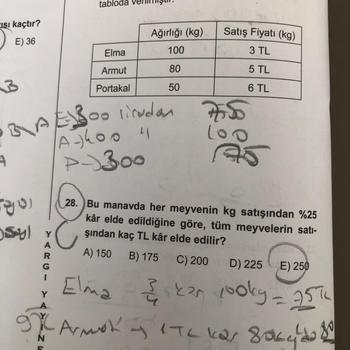 tabloda verilmiştir.
ısı kaçtır?
E) 36
Ağırlığı (kg) Satış Fiyatı (kg)
Elma 100 3 TL
Armut 80 5 TL
Portakal 50 6 TL
E→300 liradan
A→400 "
P→300
75
100
175
28. Bu manavda her meyvenin kg satışından %25
kâr elde edildiğine göre, tüm meyvelerin satı-
şından kaç TL kâr elde edilir?
A) 150 B) 175 C) 200 D) 225 E) 250
YARGI
YAYINE
Elma 3/4 kar 100kg = 75TL
Armut → 1TL kar 80kg 80